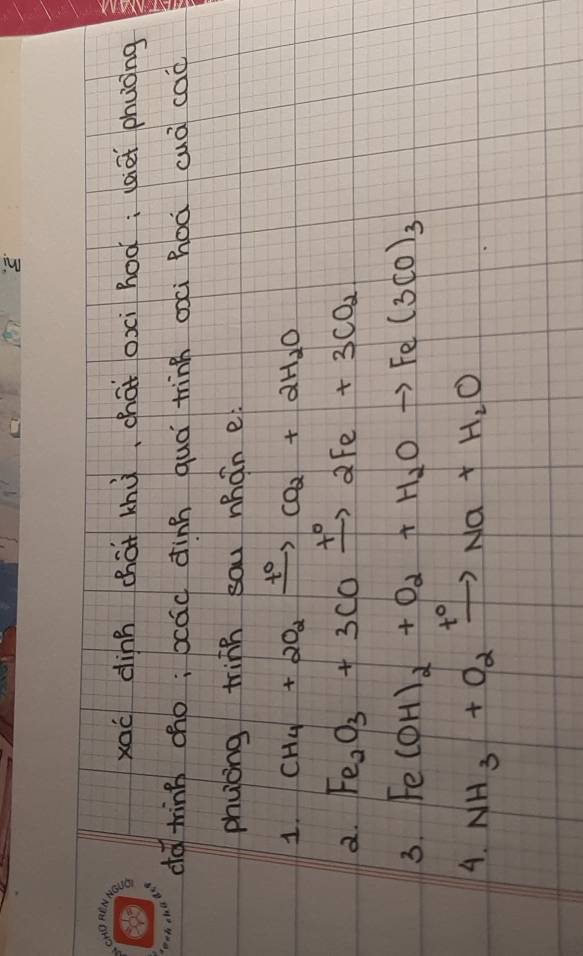 VIỆT NAM
CHO RÈN NGƯỜI
xác định chất khử, chất oxi hoá; viết phương
đã trình cho; xác định quá trình oxi hoá của các
phương trình sau nhận e:
1. CH4 + 2O2 t° → CO2 + 2H2O
2. Fe2O3 + 3CO t° → 2Fe + 3CO2
3. Fe(OH)2 + O2 + H2O → Fe(3CO)3
4. NH3 + O2 t° → Na + H2O